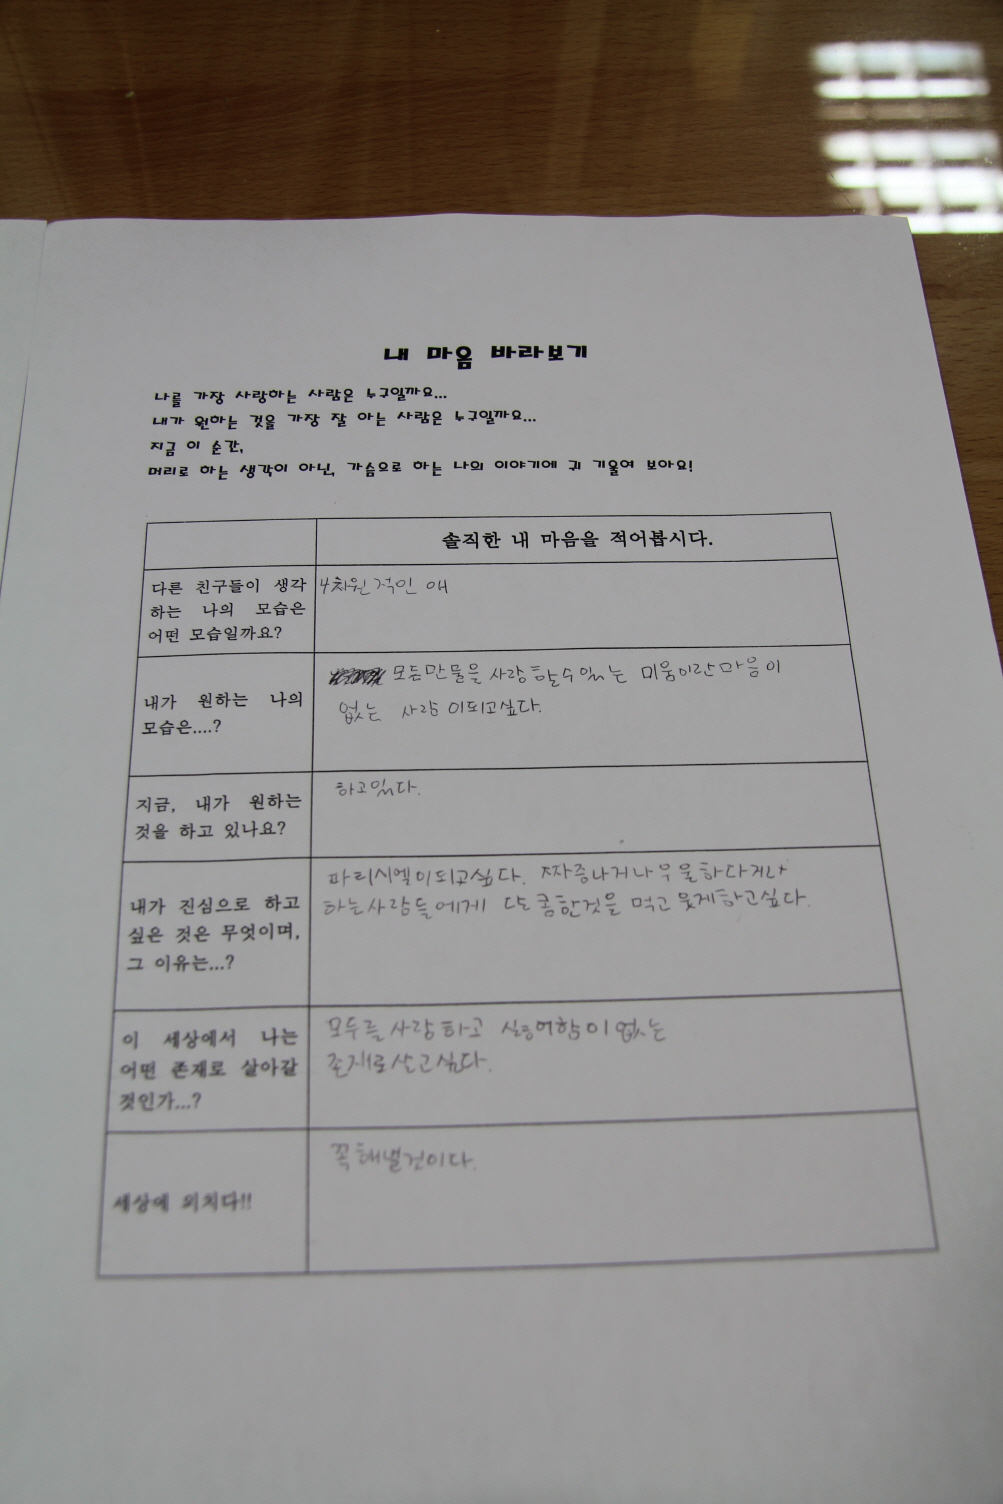 내 마음 바라보기
나를 가장 사랑하는 사람은 누구일까요...
내가 원하는 것을 가장 잘 아는 사람은 누구일까요...
지금 이 순간,
머리로 하는 생각이 아닌, 가슴으로 하는 나의 이야기에 귀 기울여 보아요!
솔직한 내 마음을 적어봅시다.
다른 친구들이 생각
하는 나의 모습은
어떤 모습일까요?
4차원적인 애
내가 원하는 나의
모습은....?
모든만물을 사랑할수있는 미움이란마음이
없는 사람이되고싶다.
지금, 내가 원하는
것을 하고 있나요?
하고있다.
내가 진심으로 하고
싶은 것은 무엇이며,
그 이유는...?
파티시엘이되고싶다. 짜증나거나우울하다거나
하는사람들에게 달콤한것을 먹고 웃게하고싶다.
이 세상에서 나는
어떤 존재로 살아갈
것인가...?
모두를사랑하고 싫어함이없는
존재로살고싶다.
세상에 외치다!!
꼭해낼것이다.